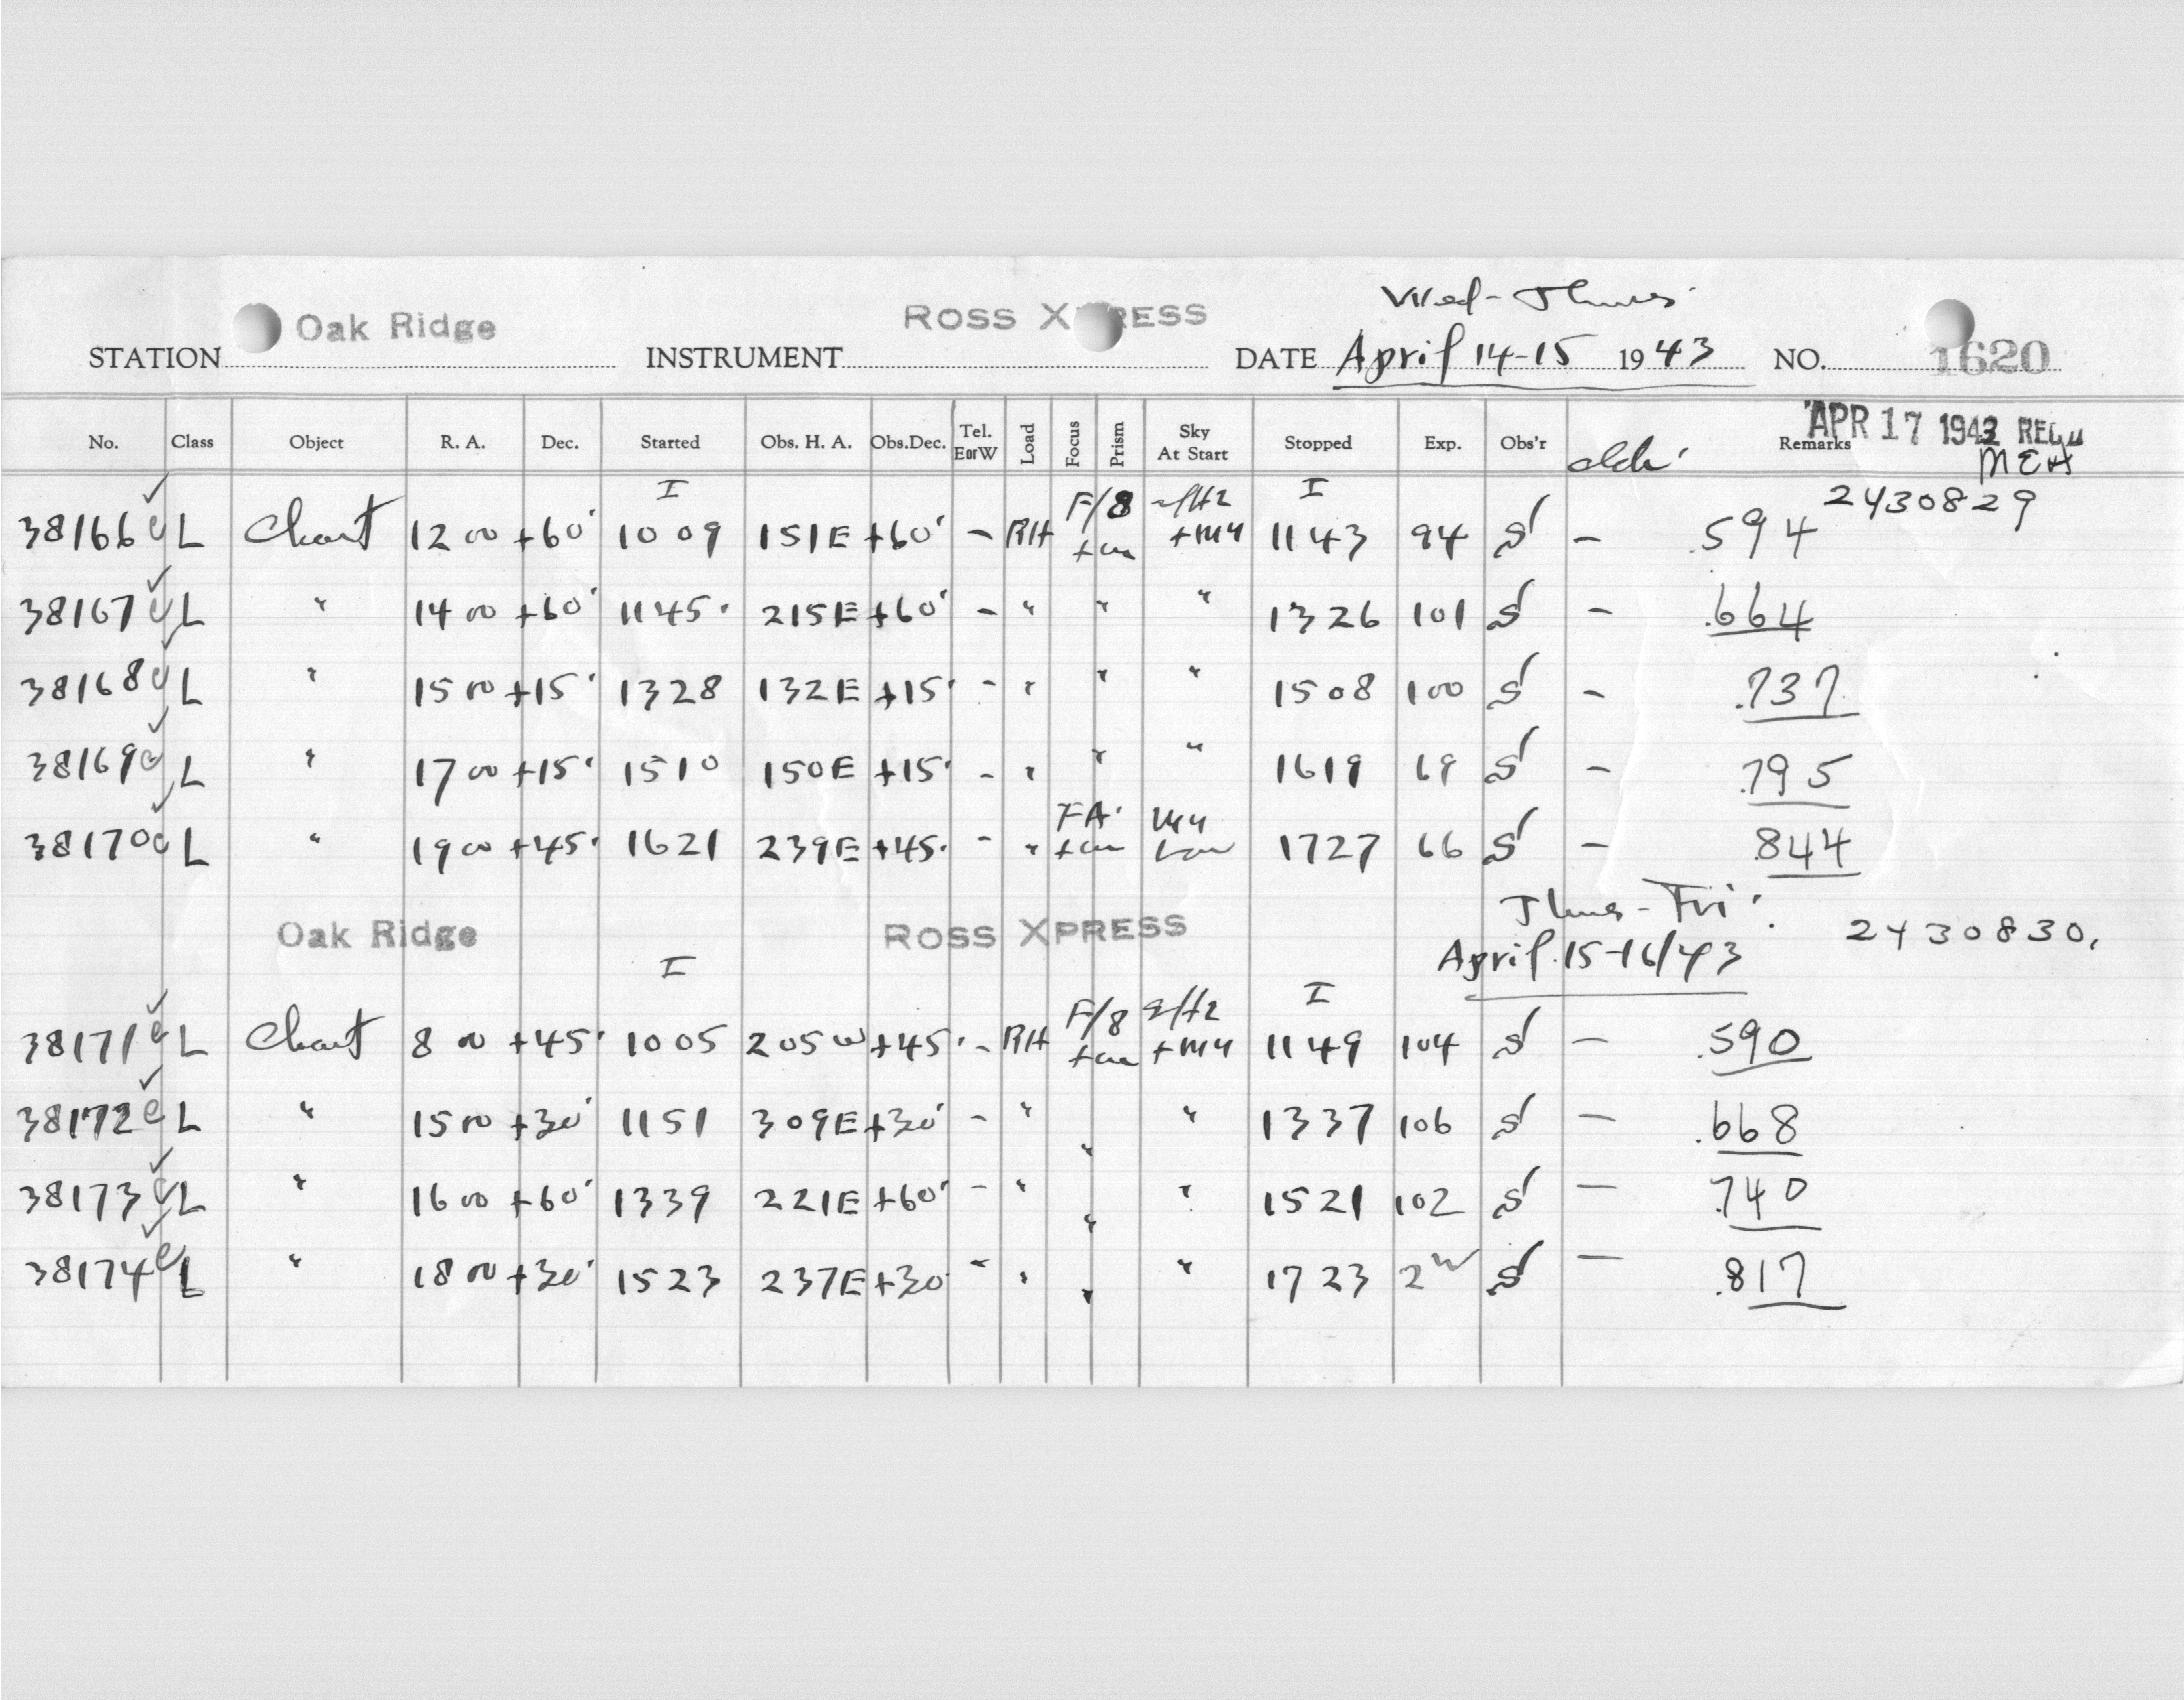 Wed-Thurs
STATION Oak Ridge INSTRUMENT ROSS XPRESS DATE April 14-15 1943 NO. 1620
No. Class Object R. A. Dec. Started Obs. H. A. Obs.Dec. Tel. EorW Load Focus Prism Sky At Start Stopped Exp. Obs'r Remarks APR 17 1943
MEH
I I 2430829
38166 c L Chart 12 00 +60° 10 09 151E +60° - RH F/8 1143 94 S - .594
38167 c L " 14 00 +60° 1145 215E +60° - " " " 1326 101 S - .664
38168 c L " 15 00 +15° 1328 132E +15° - " " " 1508 100 S - .737
38169 c L " 17 00 +15° 1510 150E +15° - " " " 1619 69 S - .795
38170 c L " 19 00 +45° 1621 239E +45° - " FA 1727 66 S - .844
Oak Ridge ROSS XPRESS Thurs-Fri
April 15-16/43 2430830.
I I
38171 c L Chart 8 00 +45° 1005 205W +45° - RH F/8 1149 104 S - .590
38172 c L " 15 00 +30° 1151 309E +30° - " " " 1337 106 S - .668
38173 c L " 16 00 +60° 1339 221E +60° - " " " 1521 102 S - .740
38174 c L " 18 00 +30° 1523 237E +30° - " " " 1723 S - .817